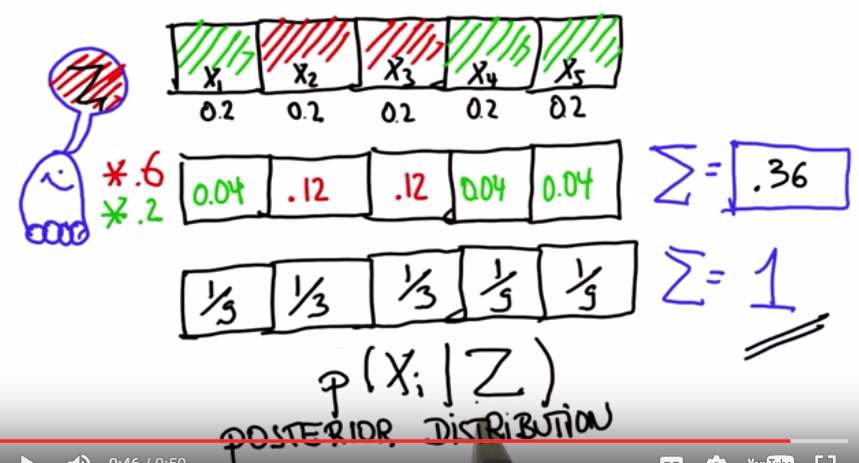 X₁ X₂ X₃ X₄ X₅
0.2 0.2 0.2 0.2 0.2
Z
*.6
*.2
0.04 .12 .12 0.04 0.04
Σ = .36
1/9 1/3 1/3 1/9 1/9
Σ = 1
p(Xᵢ|Z)
POSTERIOR DISTRIBUTION
0:46 / 0:50
YouTube